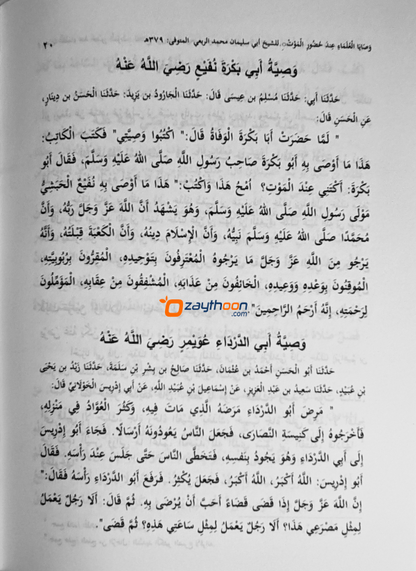 وَصَايَا الْعُلَمَاءِ عِنْدَ حُضُورِ الْمَوْتِ، للشيخ أبي سليمان محمد الربعي، المتوفى: ٣٧٩هـ ٣٠
وَصِيَّةُ أَبِي بَكْرَةَ نُفَيْعٍ رَضِيَ اللَّهُ عَنْهُ
حَدَّثَنَا أَبِي: حَدَّثَنَا مُسْلِمُ بن عِيسَى قَالَ: حَدَّثَنَا الْجَارُودُ بن يَزِيدَ: حَدَّثَنَا الْحَسَنُ بن دِينَارٍ،
عَنِ الْحَسَنِ قَالَ:
" لَمَّا حَضَرَتْ أَبَا بَكْرَةَ الْوَفَاةُ قَالَ: " اكْتُبُوا وَصِيَّتِي" فَكَتَبَ الْكَاتِبُ:
هَذَا مَا أَوْصَى بِهِ أَبُو بَكْرَةَ صَاحِبُ رَسُولِ اللَّهِ صَلَّى اللهُ عَلَيْهِ وَسَلَّمَ، فَقَالَ أَبُو
بَكْرَةَ: أَكْتَنِي عِنْدَ الْمَوْتِ؟ امْحُ هَذَا وَاكْتُبْ: " هَذَا مَا أَوْصَى بِهِ نُفَيْعٌ الْحَبَشِيُّ
مَوْلَى رَسُولِ اللَّهِ صَلَّى اللهُ عَلَيْهِ وَسَلَّمَ، وَهُوَ يَشْهَدُ أَنَّ اللهَ عَزَّ وَجَلَّ رَبُّهُ، وَأَنَّ
مُحَمَّدًا صَلَّى اللهُ عَلَيْهِ وَسَلَّمَ نَبِيُّهُ، وَأَنَّ الْإِسْلَامَ دِينُهُ، وَأَنَّ الْكَعْبَةَ قِبْلَتُهُ، وَأَنَّهُ
يَرْجُو مِنَ اللَّهِ عَزَّ وَجَلَّ مَا يَرْجُوهُ الْمُعْتَرِفُونَ بِتَوْحِيدِهِ، الْمُقِرُّونَ بِرُبُوبِيَّتِهِ،
الْمُوقِنُونَ بِوَعْدِهِ وَوَعِيدِهِ، الْخَائِفُونَ مِنْ عَذَابِهِ، الْمُشْفِقُونَ مِنْ عِقَابِهِ، الْمُؤَمِّلُونَ
لِرَحْمَتِهِ، إِنَّهُ أَرْحَمُ الرَّاحِمِينَ"
Ozaythoon
.com
وَصِيَّةُ أَبِي الدَّرْدَاءِ عُوَيْمِرٍ رَضِيَ اللَّهُ عَنْهُ
حَدَّثَنَا أَبُو الْحَسَنِ أَحْمَدُ بن عُثْمَانَ، حَدَّثَنَا صَالِحُ بن بِشْرِ بن سَلَمَةَ، حَدَّثَنَا زَيْدُ بن يَحْيَى
بْنِ عُبَيْدٍ، حَدَّثَنَا سَعِيدُ بن عَبْدِ الْعَزِيزِ، عَنْ إِسْمَاعِيلَ بن عُبَيْدِ اللَّهِ، عَنْ أَبِي إِدْرِيسَ الْخَوْلَانِيِّ قَالَ:
" مَرِضَ أَبُو الدَّرْدَاءِ مَرَضَهُ الَّذِي مَاتَ فِيهِ، وَكَثُرَ الْعُوَّادُ فِي مَنْزِلِهِ،
فَأَخْرَجُوهُ إِلَى كَنِيسَةِ النَّصَارَى، فَجَعَلَ النَّاسُ يَعُودُونَهُ أَرْسَالًا. فَجَاءَ أَبُو إِدْرِيسَ
إِلَى أَبِي الدَّرْدَاءِ وَهُوَ يَجُودُ بِنَفْسِهِ، فَتَخَطَّى النَّاسَ حَتَّى جَلَسَ عِنْدَ رَأْسِهِ. فَقَالَ
أَبُو إِدْرِيسَ: اللَّهُ أَكْبَرُ، اللَّهُ أَكْبَرُ، فَجَعَلَ يُكَبِّرُ. فَرَفَعَ أَبُو الدَّرْدَاءِ رَأْسَهُ فَقَالَ: "
إِنَّ اللَّهَ عَزَّ وَجَلَّ إِذَا قَضَى قَضَاءً أَحَبَّ أَنْ يُرْضَى بِهِ. ثُمَّ قَالَ: أَلَا رَجُلٌ يَعْمَلُ
لِمِثْلِ مَصْرَعِي هَذَا؟ أَلَا رَجُلٌ يَعْمَلُ لِمِثْلِ سَاعَتِي هَذِهِ؟ ثُمَّ قَضَى".